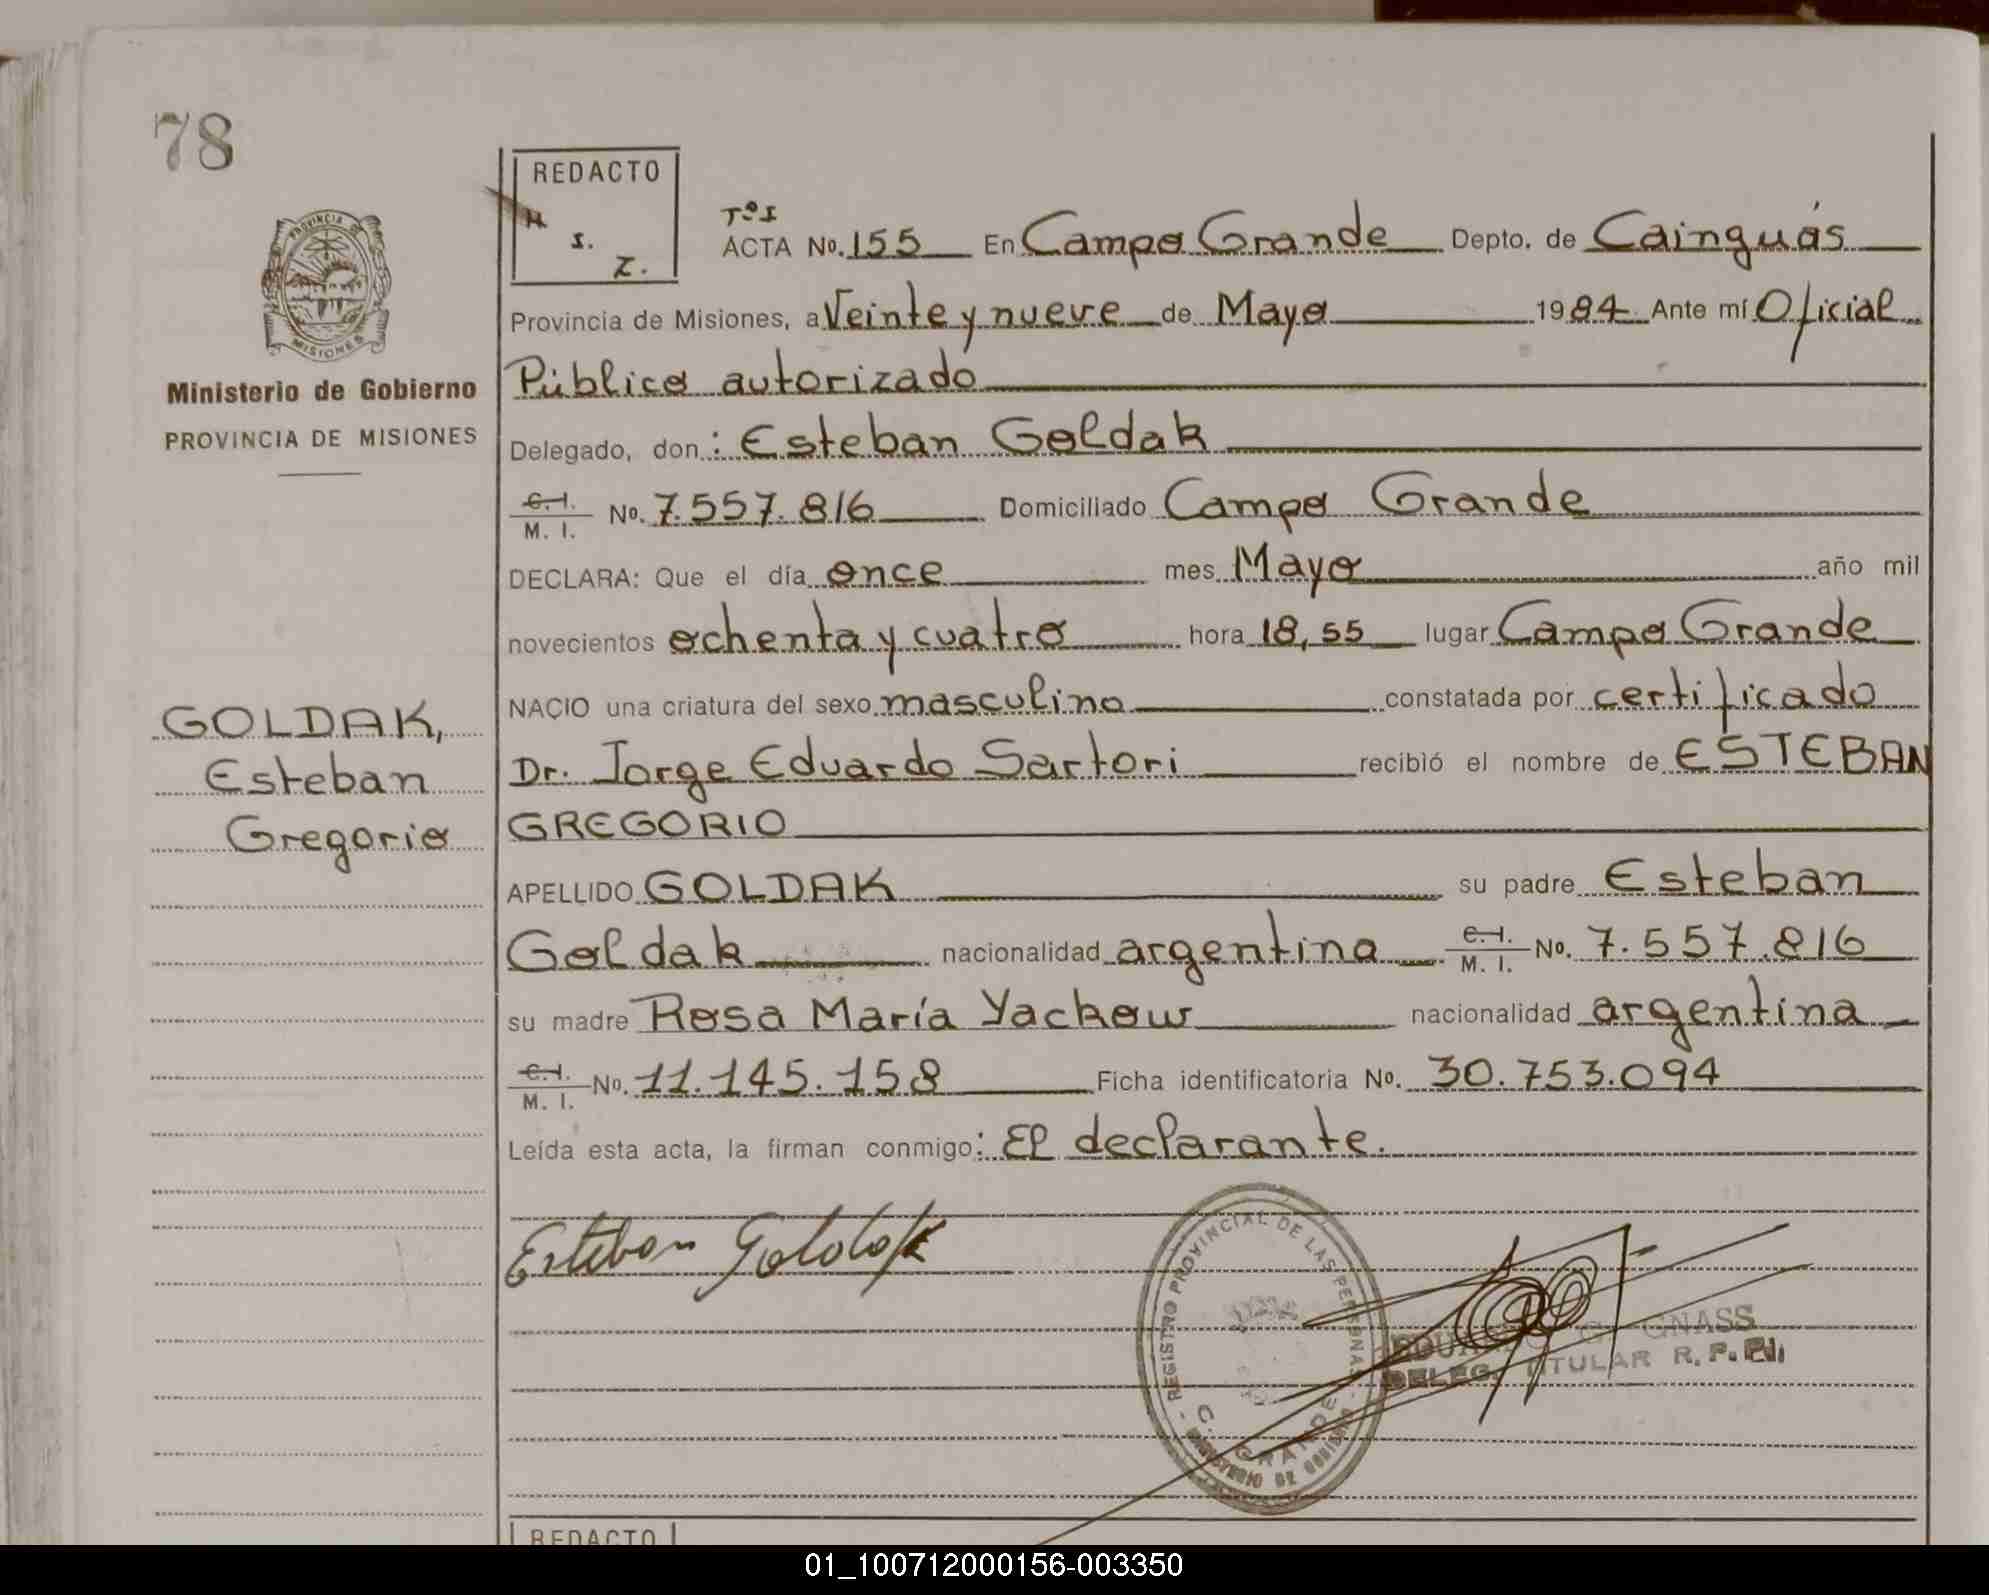 78
REDACTO
H
S.
Z.
Tº I
ACTA No. 155 En Campo Grande Depto. de Cainguás
Provincia de Misiones, a Veinte y nueve de Mayo 1984 Ante mí Oficial
Público autorizado
Delegado, don: Esteban Goldak
C.I. M. I. No. 7.557.816 Domiciliado Campo Grande
DECLARA: Que el día once mes Mayo año mil
novecientos ochenta y cuatro hora 18,55 lugar Campo Grande
NACIO una criatura del sexo masculino constatada por certificado
Dr. Jorge Eduardo Sartori recibió el nombre de ESTEBAN
GREGORIO
APELLIDO GOLDAK su padre Esteban
Goldak nacionalidad argentina C.I. M. I. No. 7.557.816
su madre Rosa María Yackow nacionalidad argentina
C.I. M. I. No. 11.145.158 Ficha identificatoria No. 30.753.094
Leída esta acta, la firman conmigo: El declarante.
Esteban Goldak
PROVINCIA DE
MISIONES
Ministerio de Gobierno
PROVINCIA DE MISIONES
GOLDAK,
Esteban
Gregorio
REGISTRO PROVINCIAL DE LAS PERSONAS
C. GRANDE
MINISTERIO DE GOBIERNO
GNASS
DELEG. TITULAR R. P.
REDACTO
01_100712000156-003350